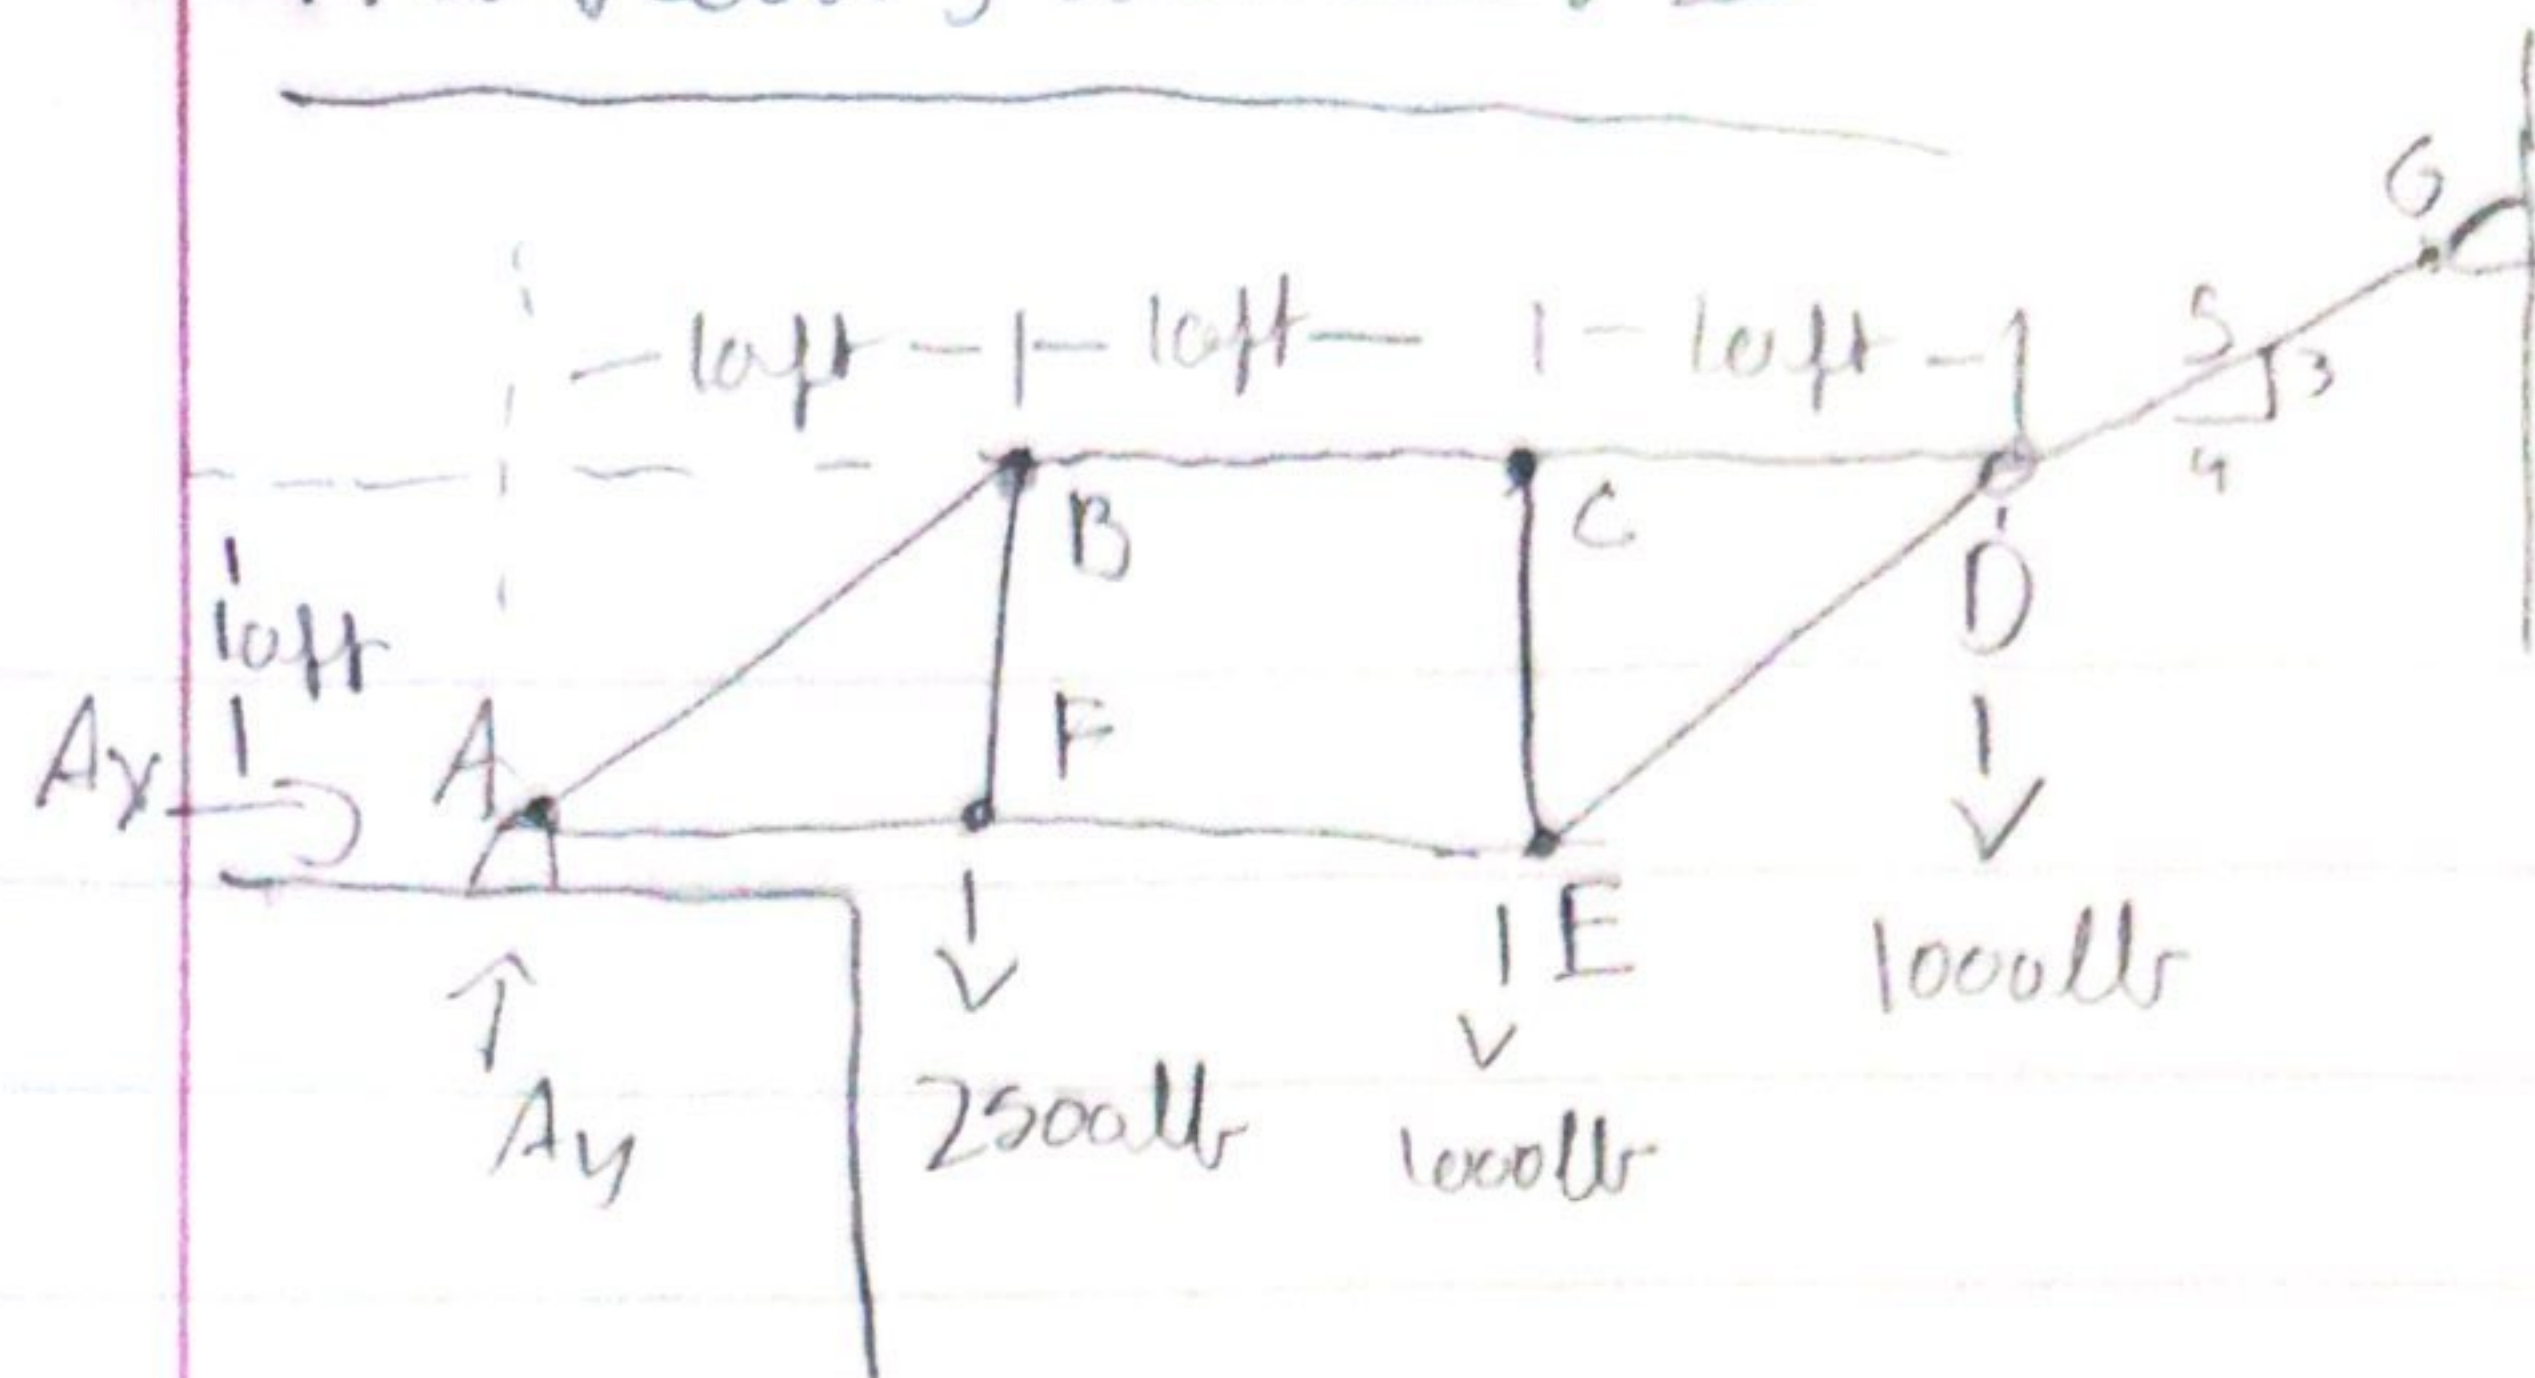 G
10ft 10ft 10ft
5
3
4
B
C
D
10ft
A
F
Ax
E
1000lb
Ay
2500lb
1000lb